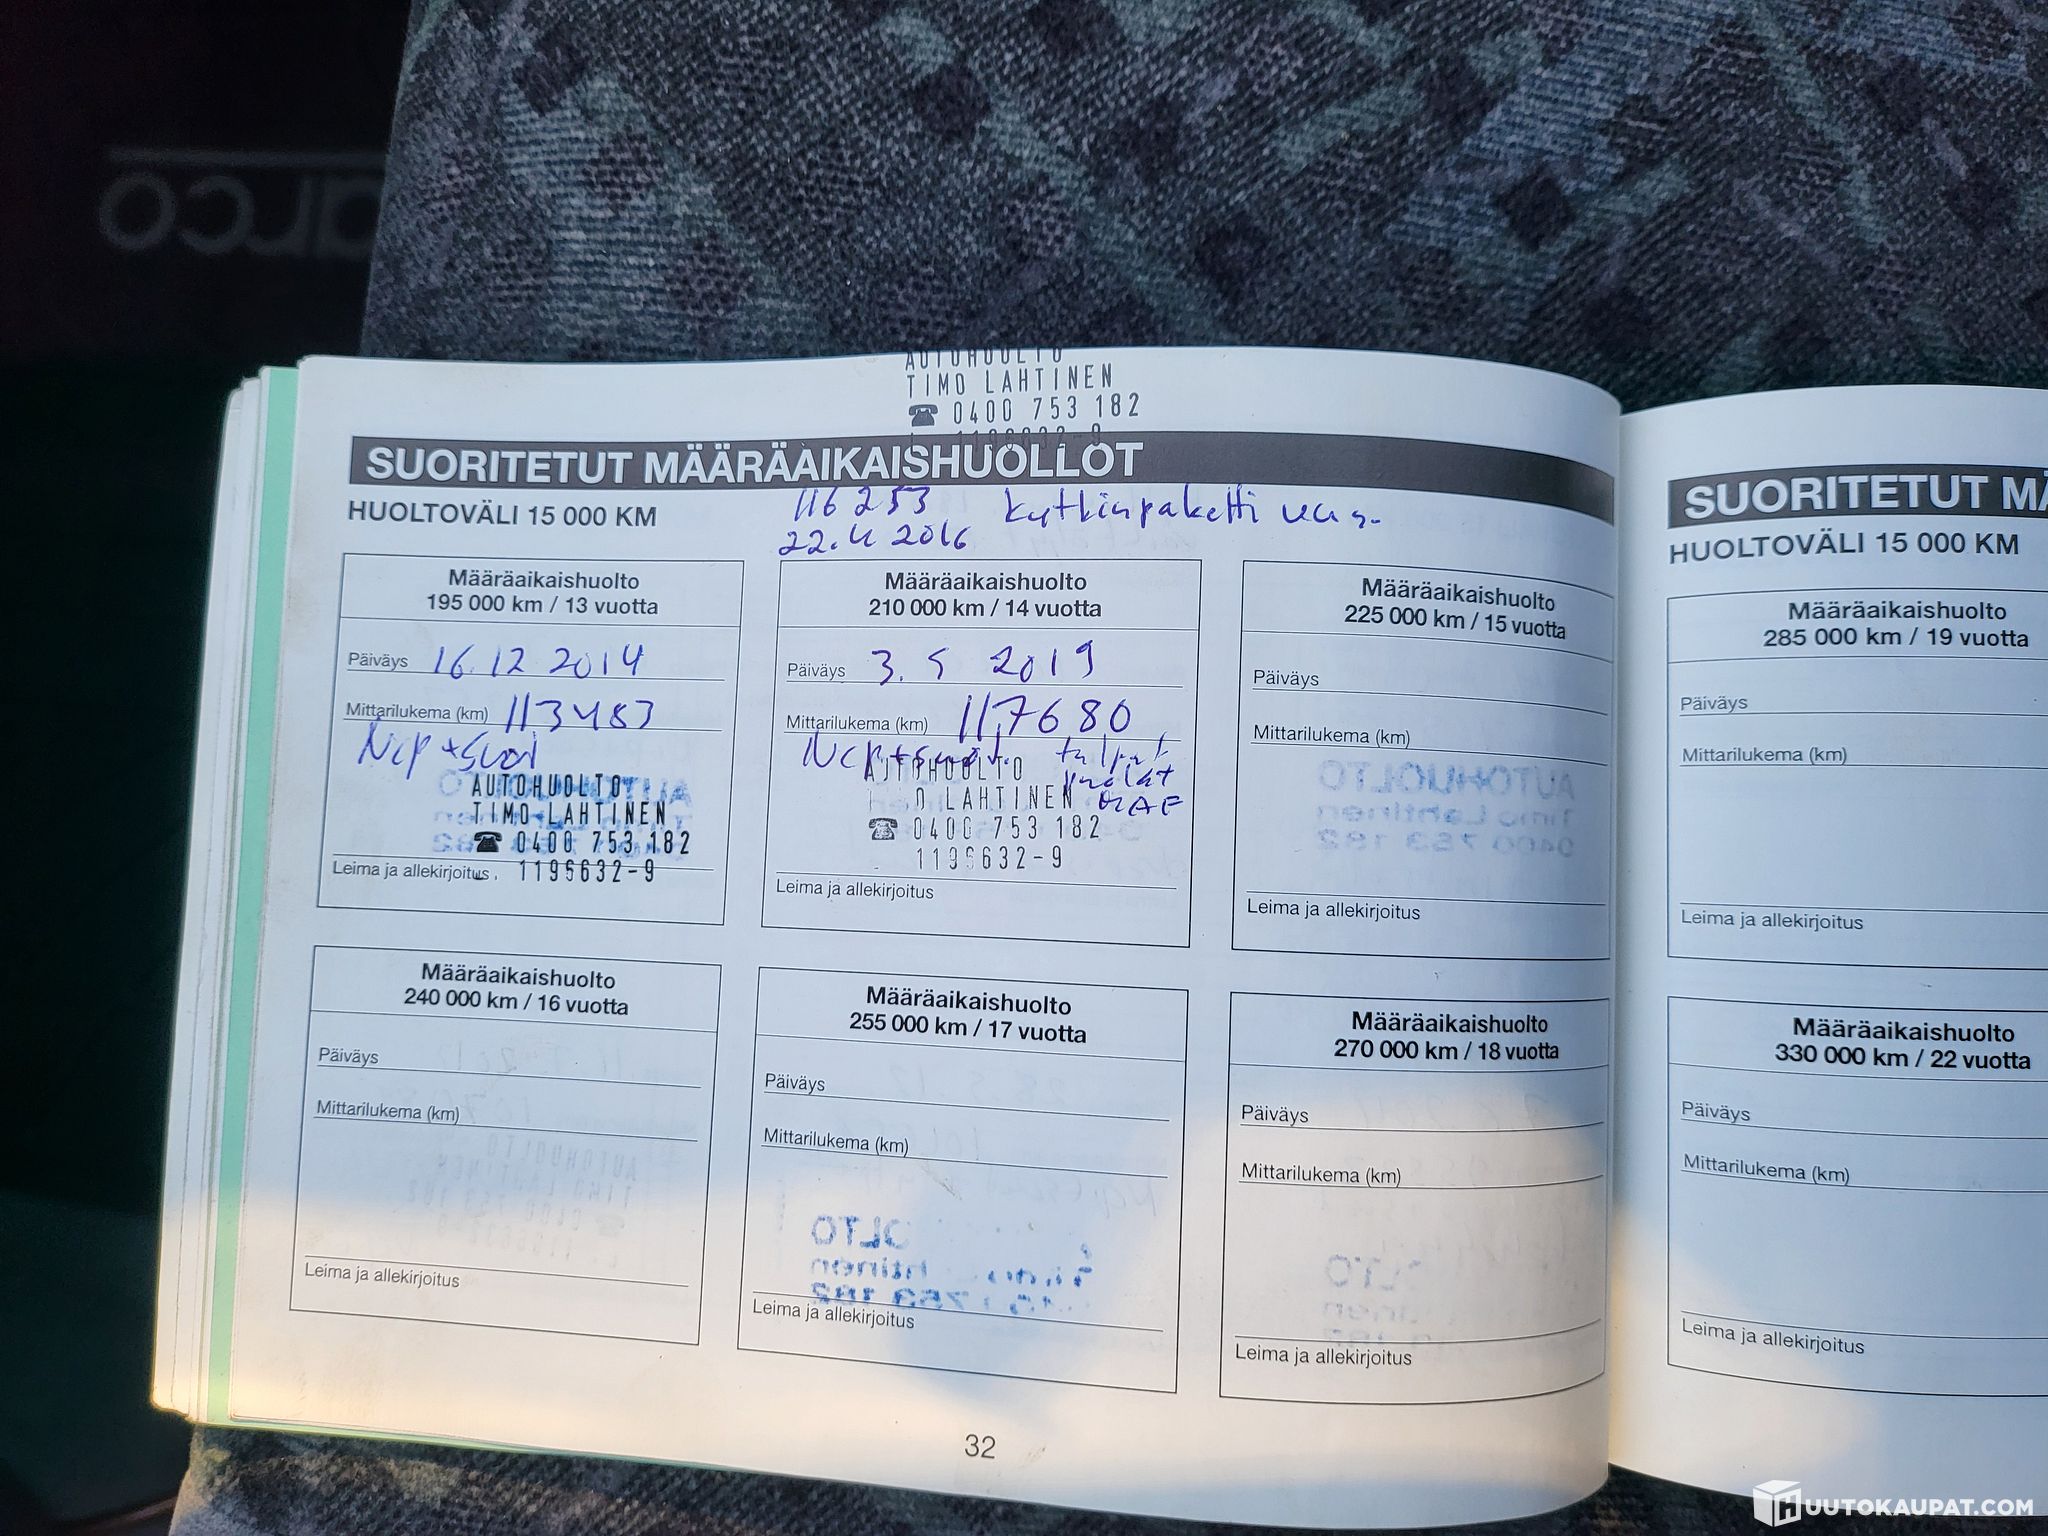 arco
AUTOHUOLTO
TIMO LAHTINEN
☎ 0400 753 182
1196632-9
SUORITETUT MÄÄRÄAIKAISHUOLLOT
HUOLTOVÄLI 15 000 KM
116 253 kytkinpaketti
22.4 2016
Määräaikaishuolto
195 000 km / 13 vuotta
Päiväys 16.12 2014
Mittarilukema (km) 113483
Ncp + suod
AUTOHUOLTO
TIMO LAHTINEN
☎ 0400 753 182
Leima ja allekirjoitus 1196632-9
Määräaikaishuolto
210 000 km / 14 vuotta
Päiväys 3. 5 2019
Mittarilukema (km) 117680
Ncp + suod. tulpat
AUTOHUOLTO puolat
O LAHTINEN MAF
☎ 0400 753 182
1196632-9
Leima ja allekirjoitus
Määräaikaishuolto
225 000 km / 15 vuotta
Päiväys
Mittarilukema (km)
AUTOHUOLTO
Timo Lahtinen
0400 753 182
Leima ja allekirjoitus
Määräaikaishuolto
240 000 km / 16 vuotta
Päiväys
Mittarilukema (km)
Leima ja allekirjoitus
Määräaikaishuolto
255 000 km / 17 vuotta
Päiväys
Mittarilukema (km)
Leima ja allekirjoitus
Määräaikaishuolto
270 000 km / 18 vuotta
Päiväys
Mittarilukema (km)
Leima ja allekirjoitus
32
SUORITETUT MÄ
HUOLTOVÄLI 15 000 KM
Määräaikaishuolto
285 000 km / 19 vuotta
Päiväys
Mittarilukema (km)
Leima ja allekirjoitus
Määräaikaishuolto
330 000 km / 22 vuotta
Päiväys
Mittarilukema (km)
Leima ja allekirjoitus
HUUTOKAUPAT.COM